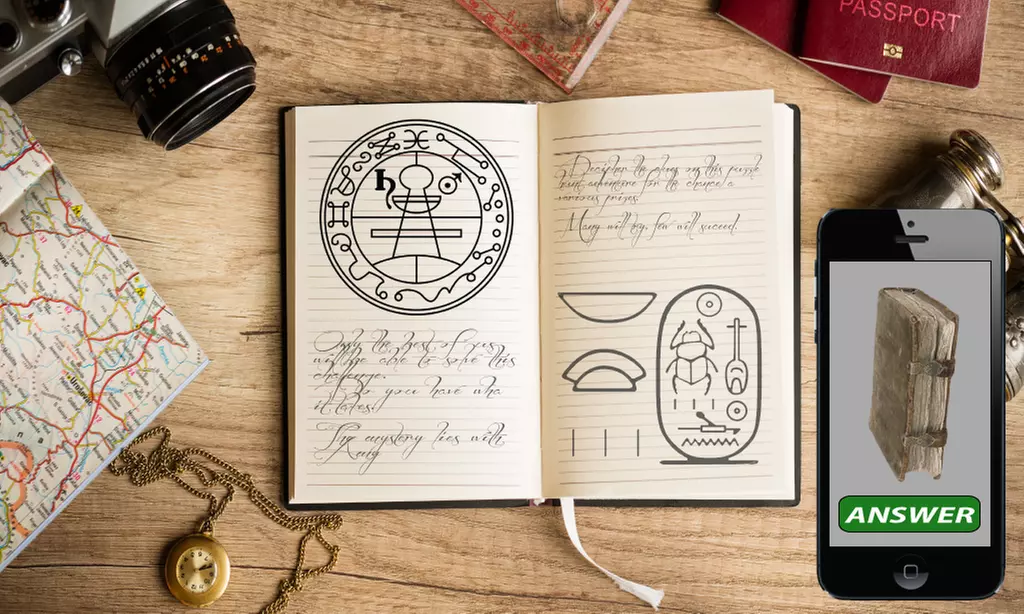 PASSPORT
Only the best of you
will be able to solve this
challenge.
Do you have wha
it takes?
The mystery lies with
King
Decipher the clues on this puzzle
hunt adventure for the chance a
various prizes.
Many will try, few will succeed.
ANSWER